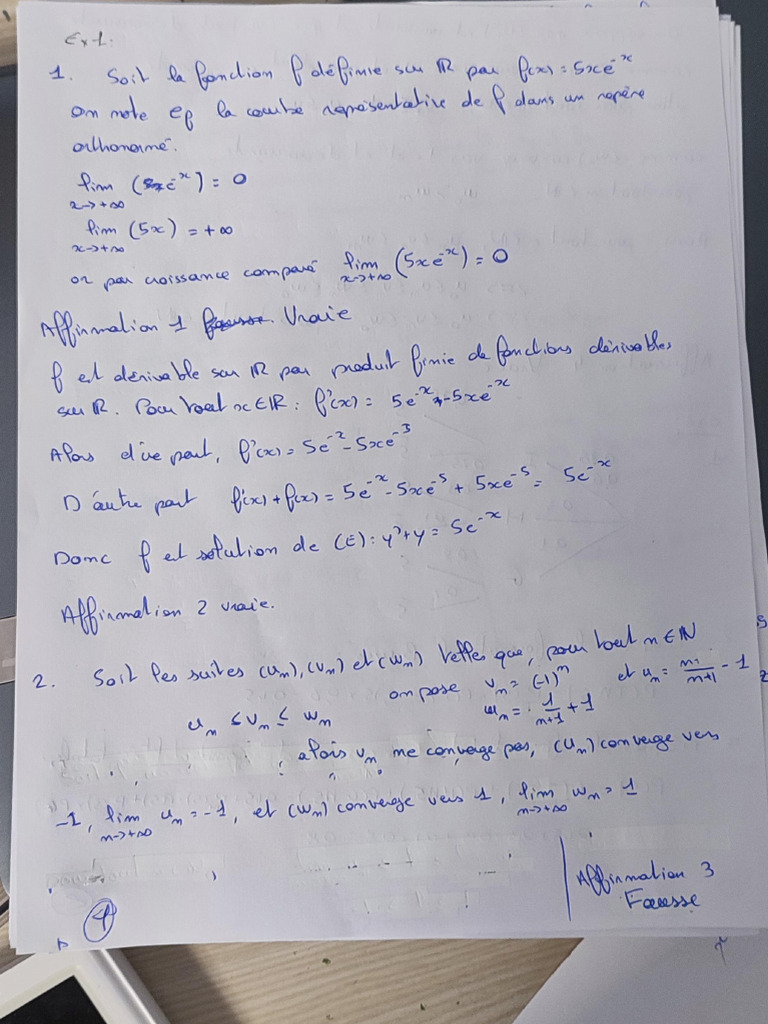 Ex 1.
1. Soit la fonction f définie sur ℝ par f(x) = 5xe^-x
on note Cf la courbe représentative de f dans un repère
orthonormé.
lim x→+∞ (e^-x) = 0
lim x→+∞ (5x) = +∞
or par croissance comparé lim x→+∞ (5xe^-x) = 0
Affirmation 1 Vraie
f est dérivable sur ℝ par produit finie de fonctions dérivables
sur ℝ. Pour tout x∈ℝ : f'(x) = 5e^-x + -5xe^-x
Alors d'ue part, f'(x) = 5e^-2 - 5xe^-3
D'autre part f'(x) + f(x) = 5e^-x - 5xe^-5 + 5xe^-5 = 5e^-x
Donc f est solution de (E) : y' + y = 5e^-x
Affirmation 2 vraie.
2. Soit les suites (un), (vn) et (wn) telles que, pour tout n∈ℕ
un ≤ vn ≤ wn on pose vn = (-1)^n et un = 1/(n+1) - 1
wn = 1/(n+1) + 1
alors vn ne converge pas, (un) converge vers
-1, lim n→+∞ un = -1, et (wn) converge vers 1, lim n→+∞ wn = 1
Affirmation 3
Fausse